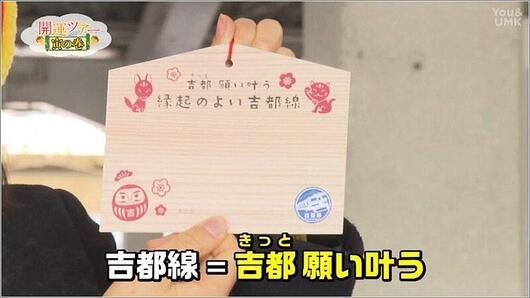 You&
UMK
開運ツアー
寅の巻
きっと
吉都 願い叶う
縁起のよい吉都線
吉
吉都線
きっと
吉都線=吉都 願い叶う